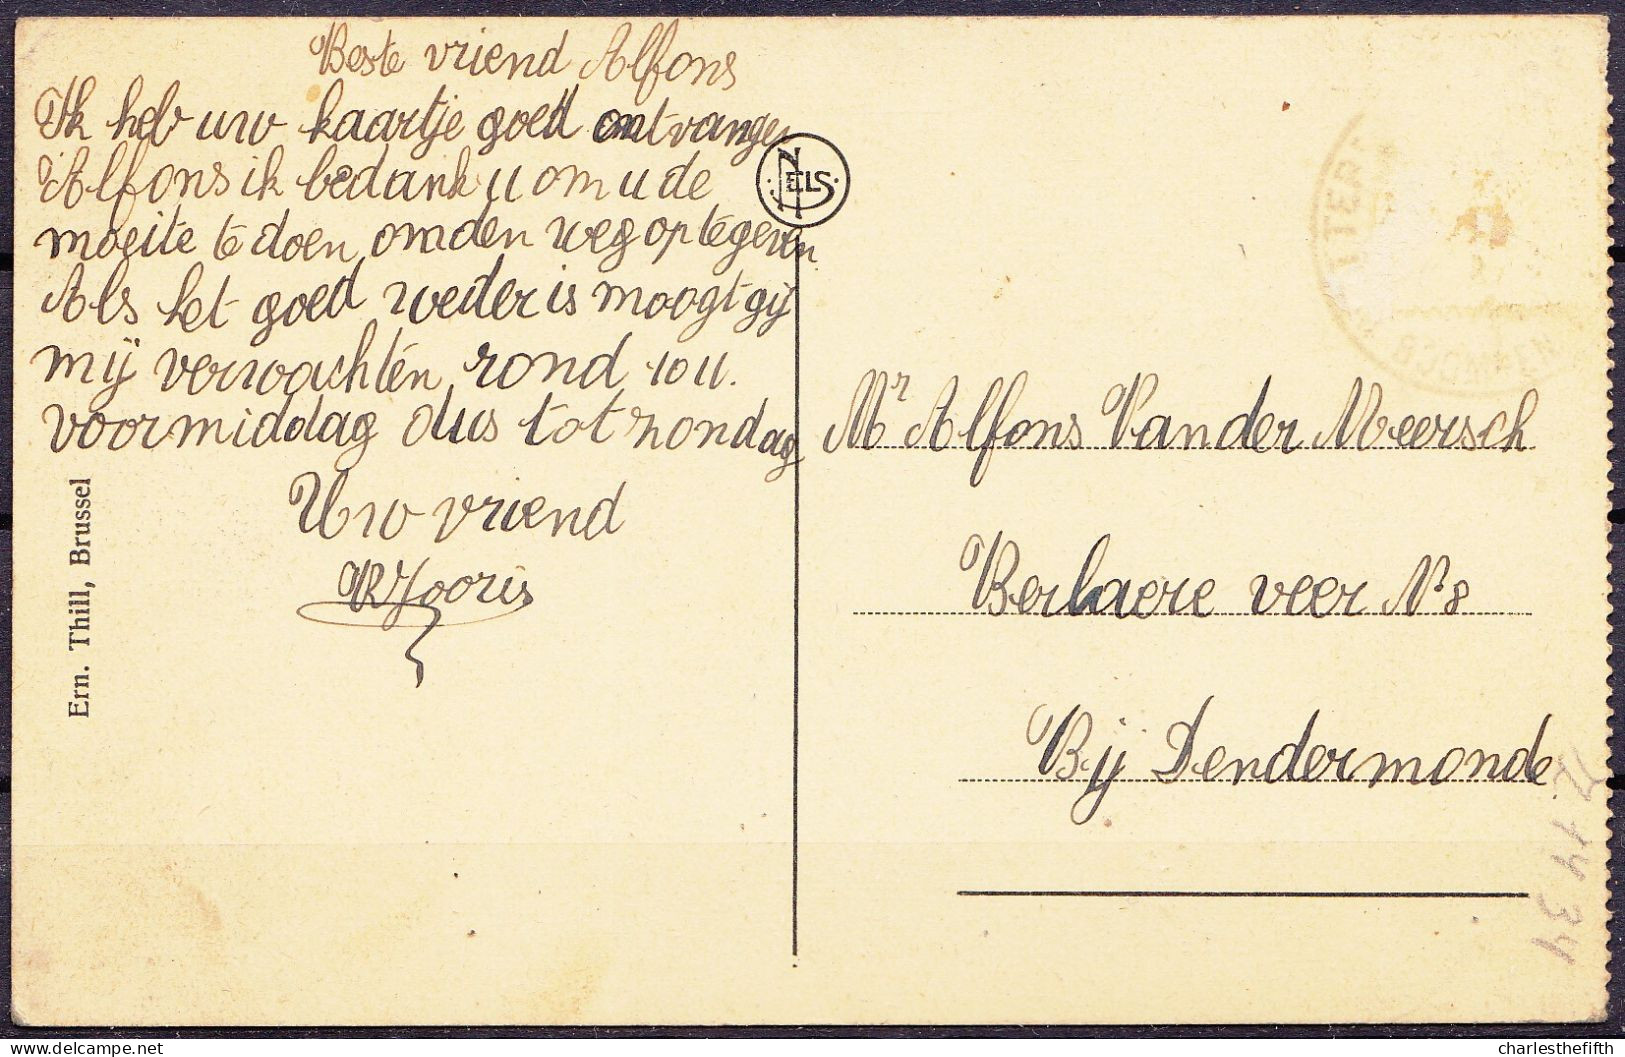 Beste vriend Alfons
Ik heb uw kaartje goed ontvangen
Alfons ik bedank u om u de
moeite te doen om den weg op te geven
Als het goed weder is moogt gij
mij verwachten rond 10 u.
voormiddag dus tot zondag
Uw vriend
R Jooris
NELS
Ern. Thill, Brussel
Mr Alfons Van der Meersch
Berlaere veer N° 8
Bij Dendermonde
1434
charlesthefifth